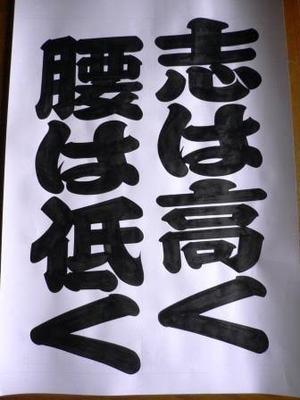 志は高く
腰は低く